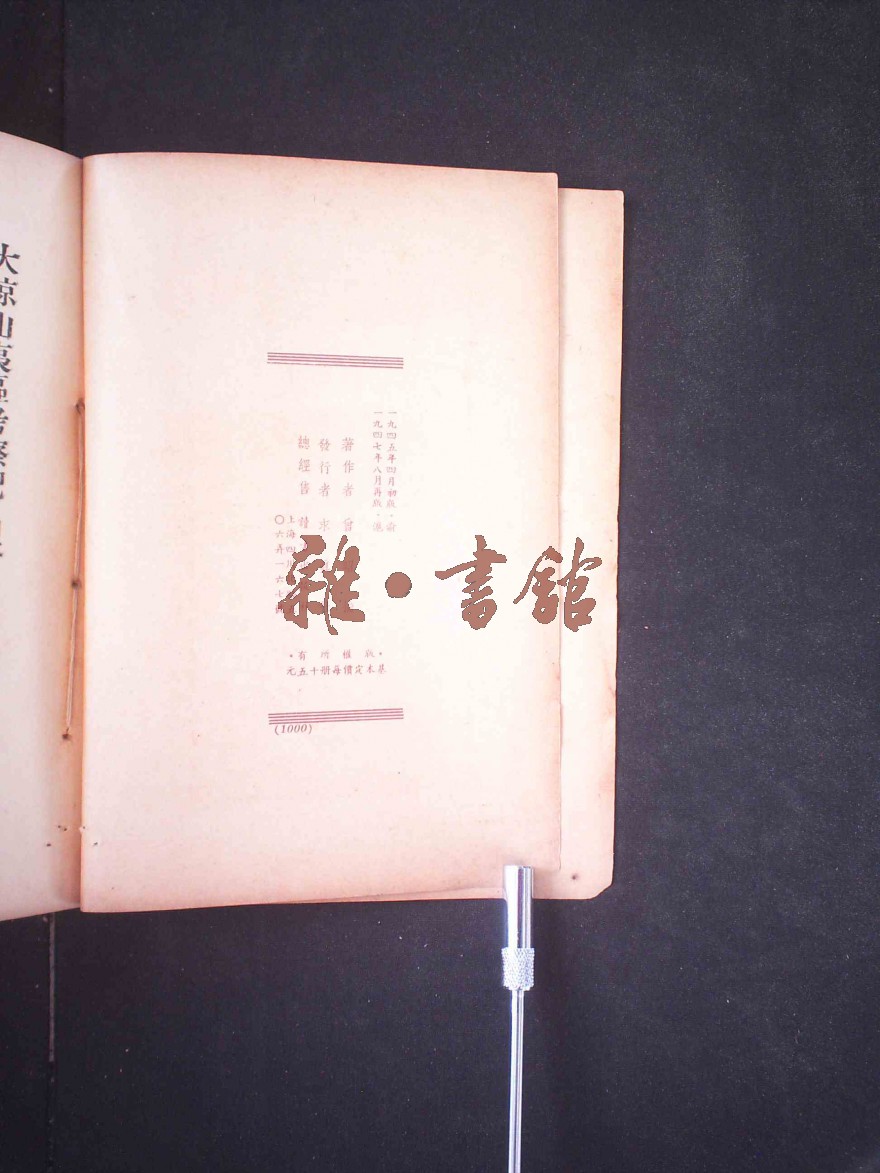 大涼山夷區考察記
一九四五年四月初版·渝
一九四七年八月再版·滬
著作者 曾
發行者 求
總經售
上海四川
〇六弄一六七
·版權所有·
基本定價每册十五元
(1000)
雜·書館